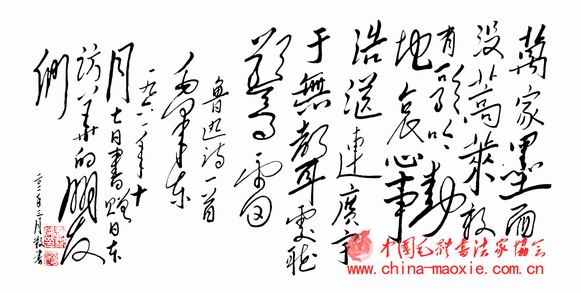 萬家墨面
没蒿萊敢
有歌吟動
地哀心事
浩茫連廣宇
于無聲處聽
驚雷
魯迅詩一首
毛澤東
一九六一年十
月七日書贈日本
訪華的朋友
們
年三月
中国毛體书法家協会
www.china-maoxie.com.cn